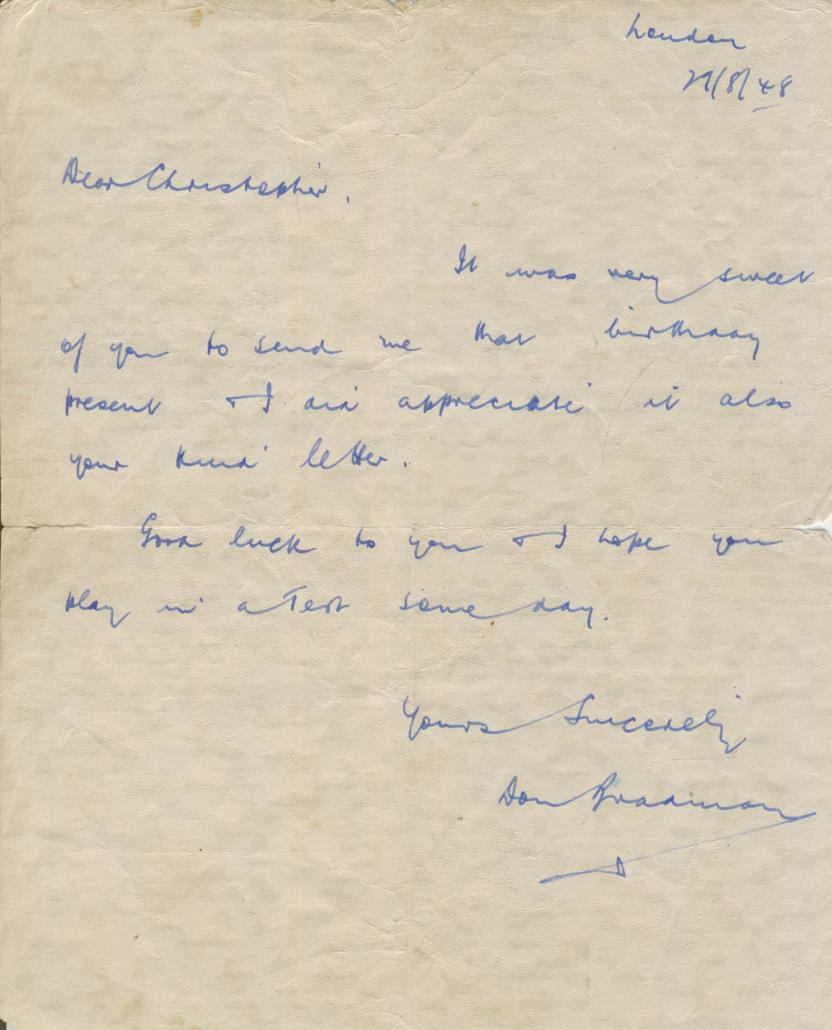 London
29/8/48
Dear Christopher,
It was very sweet
of you to send me that birthday
present & I did appreciate it also
your kind letter.
Good luck to you & I hope you
play in a Test some day.
Yours Sincerely
Don Bradman